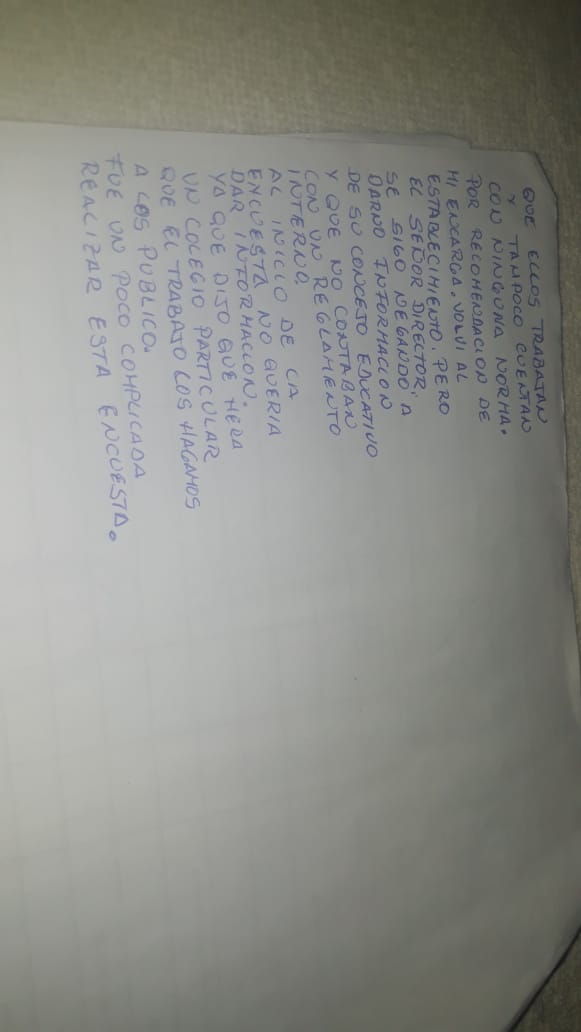 QUE ELLOS TRABATAN
Y TAMPOCO CUENTAN
CON NINGUNA NORMA.
POR RECOMENDACION DE
MI ENXARGA. VOLVI AL
ESTABLECIMIENTO PERO
EL SEÑOR DIRECTOR. A
SE SIGO NEGANDO
DARNO INFORMACION
DE SU CONCEJO EDUCATIVO
Y QUE NO CONTABAN
CON UN REGLAMENTO
INTERNO.
AL INICIO DE LA
ENCUESTA NO QUERIA
DAR INFORMACCION.
YA QUE DIJO QUE HERA
UN COLEGIO PARTICULAR
QUE EL TRABAJO LOS HAGAMOS
A LOS PUBLICO.
FUE UN POCO COMPLICADA
REALIZAR ESTA ENCUESTA.